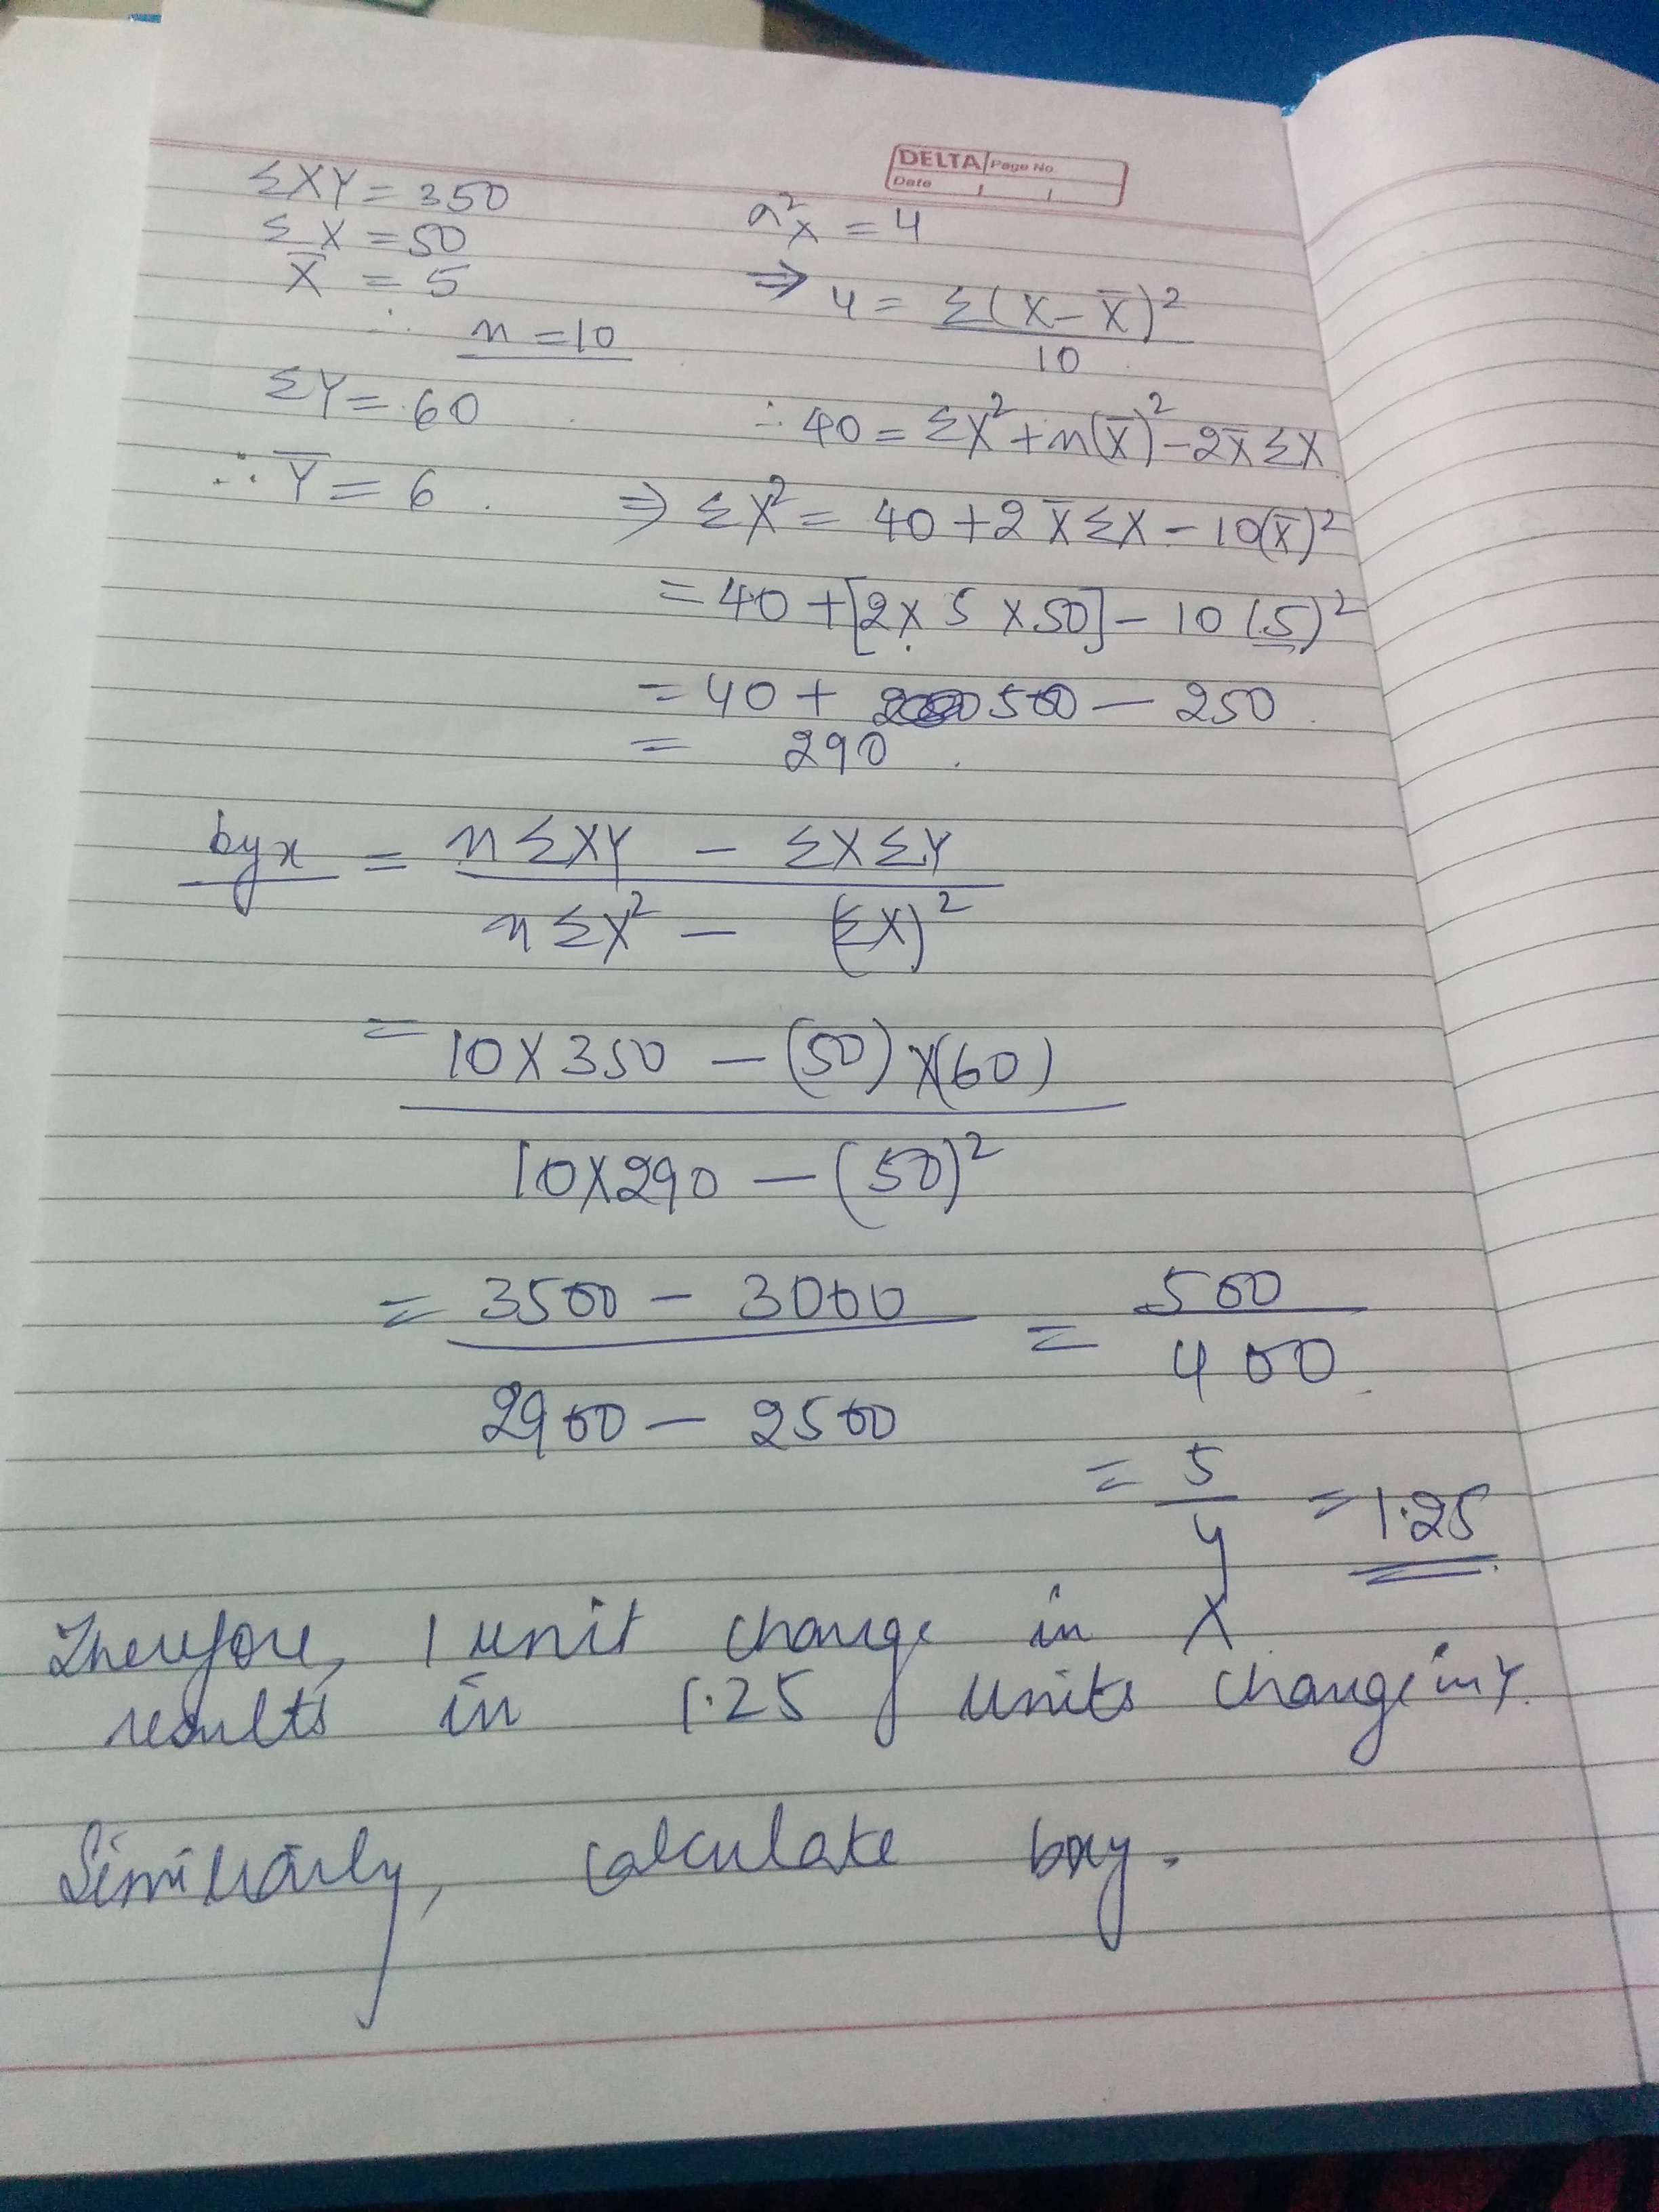 DELTA Page No.
Date
ΣXY = 350
ΣX = 50
X̄ = 5
∴ n = 10
ΣY = 60
∴ Ȳ = 6
σ²x = 4
⇒ 4 = Σ(X - X̄)² / 10
∴ 40 = ΣX² + n(X̄)² - 2X̄ΣX
⇒ ΣX² = 40 + 2X̄ΣX - 10(X̄)²
= 40 + [2 X 5 X 50] - 10 (5)²
= 40 + 500 - 250
= 290
byx = nΣXY - ΣXΣY / nΣX² - (ΣX)²
= 10 X 350 - (50) X (60) / 10 X 290 - (50)²
= 3500 - 3000 / 2900 - 2500 = 500 / 400
= 5 / 4 = 1.25
Therefore, 1 unit change in X
results in 1.25 units change in Y.
Similarly, calculate bxy.